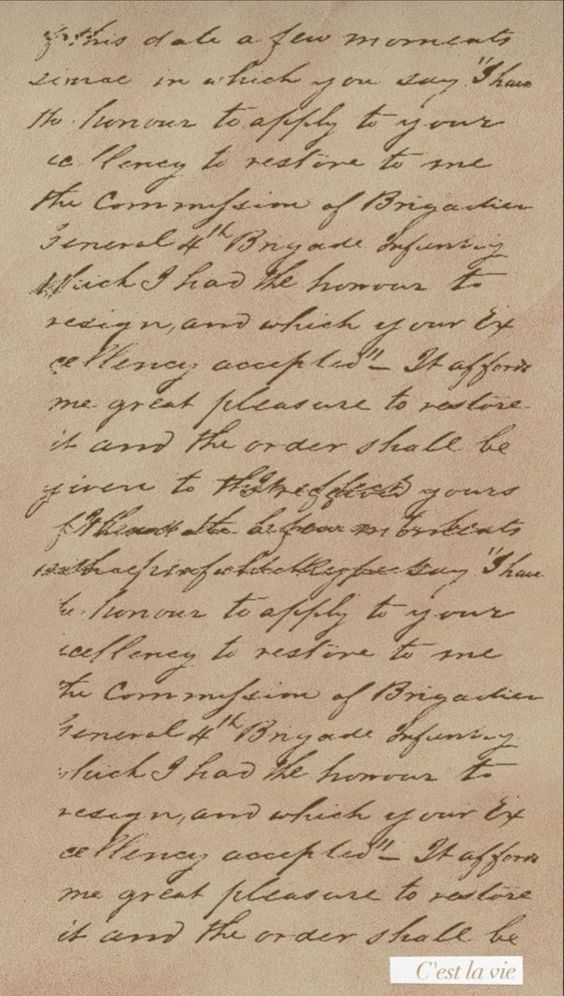 this date a few moments
since in which you say "I have
the honour to apply to your
cellency to restore to me
the Commission of Brigadier
General 4th Brigade Infantry
Which I had the honour to
resign, and which your Ex
cellency accepted" – It affords
me great pleasure to restore
it and the order shall be
given to yours

say "I have
honour to apply to your
cellency to restore to me
the Commission of Brigadier
General 4th Brigade Infantry
which I had the honour to
resign, and which your Ex
cellency accepted" – It affords
me great pleasure to restore
it and the order shall be
C'est la vie